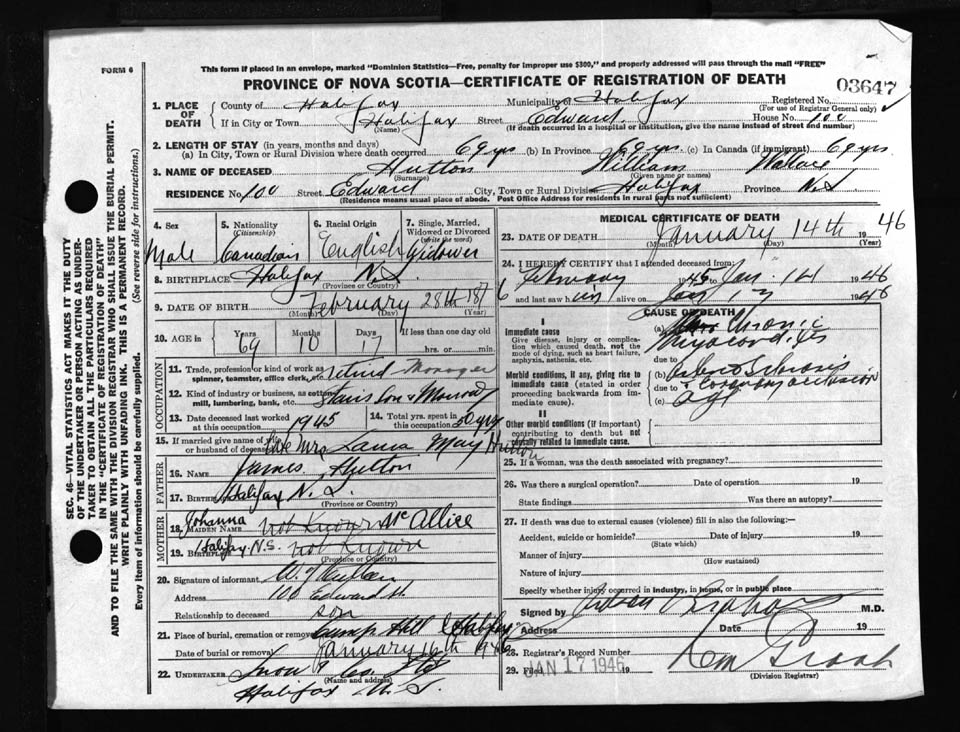 This form if placed in an envelope, marked "Dominion Statistics—Free, penalty for improper use $300," and properly addressed will pass through the mail "FREE"
FORM 6
PROVINCE OF NOVA SCOTIA—CERTIFICATE OF REGISTRATION OF DEATH
03647
1. PLACE OF DEATH
County of Halifax Municipality of Halifax Registered No.
(For use of Registrar General only)
If in City or Town Halifax Street Edward House No. 100
(Name) (If death occurred in a hospital or institution, give the name instead of street and number)
2. LENGTH OF STAY (in years, months and days)
(a) In City, Town or Rural Division where death occurred 69 yrs (b) In Province 69 yrs. (c) In Canada (if immigrant) 69 yrs
3. NAME OF DECEASED Hutton William Wallace
(Surname) (Given name or names)
RESIDENCE No. 100 Street Edward City, Town or Rural Division Halifax Province N.S.
(Residence means usual place of abode. Post Office Address for residents in rural parts not sufficient)
SEC. 46—VITAL STATISTICS ACT MAKES IT THE DUTY
OF THE UNDERTAKER OR PERSON ACTING AS UNDER-
TAKER TO OBTAIN ALL THE PARTICULARS REQUIRED
IN THE "CERTIFICATE OF REGISTRATION OF DEATH"
AND TO FILE THE SAME WITH THE DIVISION REGISTRAR WHO SHALL ISSUE THE BURIAL PERMIT.
WRITE PLAINLY WITH UNFADING INK. THIS IS A PERMANENT RECORD.
Every item of information should be carefully supplied. (See reverse side for instructions.)
4. Sex 5. Nationality 6. Racial Origin 7. Single, Married,
(Citizenship) Widowed or Divorced
(write the word)
Male Canadian English Widower
8. BIRTHPLACE Halifax N.S.
(Province or Country)
9. DATE OF BIRTH February 28th 1876
(Month) (Day) (Year)
10. AGE IN Years Months Days If less than one day old
69 10 17 hrs. or min.
OCCUPATION
11. Trade, profession or kind of work as
spinner, teamster, office clerk, etc. retired Manager
12. Kind of industry or business, as cotton
mill, lumbering, bank, etc.
13. Date deceased last worked
at this occupation 1945
14. Total yrs. spent in
this occupation 50 yrs
15. If married give name of wife
or husband of deceased Late Mrs Laura May Hutton
FATHER
16. NAME James Hutton
17. Birthplace Halifax N.S.
(Province or Country)
MOTHER
18. MAIDEN NAME Johanna not Known McAllice
19. Birthplace Halifax N.S. not Known
(Province or Country)
20. Signature of informant W. Hutton
Address 100 Edward St.
Relationship to deceased son
21. Place of burial, cremation or removal Camp Hill Halifax
Date of burial or removal January 16th 1946
22. UNDERTAKER Snow & Co Ltd
(Name and address)
Halifax N.S.
MEDICAL CERTIFICATE OF DEATH
23. DATE OF DEATH January 14th 1946
(Month) (Day) (Year)
24. I HEREBY CERTIFY that I attended deceased from
February 1945 to Jan. 14 1946
and last saw him alive on Jan 1946
CAUSE OF DEATH
I
Immediate cause
Give disease, injury or complica-
tion which caused death, not the
mode of dying, such as heart failure,
asphyxia, asthenia, etc.
(a) Chronic
Myocarditis
due to
Morbid conditions, if any, giving rise to
immediate cause (stated in order
proceeding backwards from im-
mediate cause).
(b) Arterio Sclerosis
due to Coronary occlusion
(c) age
II
Other morbid conditions (if important)
contributing to death but not
causally related to immediate cause.
25. If a woman, was the death associated with pregnancy?
26. Was there a surgical operation? Date of operation 19
State findings Was there an autopsy?
27. If death was due to external causes (violence) fill in also the following:—
Accident, suicide or homicide? Date of injury 19
(State which)
Manner of injury
(How sustained)
Nature of injury
Specify whether injury occurred in industry, in home, or in public place
Signed by M.D.
Address Date 19
28. Registrar's Record Number
29. Filed JAN 17 1946 19
(Division Registrar)